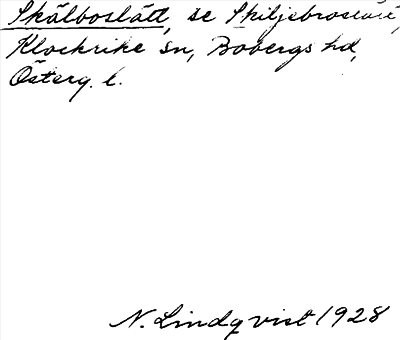 Skälboslätt, se Skiljebroslätt,
Klockrike sn, Bobergs hd,
Österg. l.
N. Lindqvist 1928